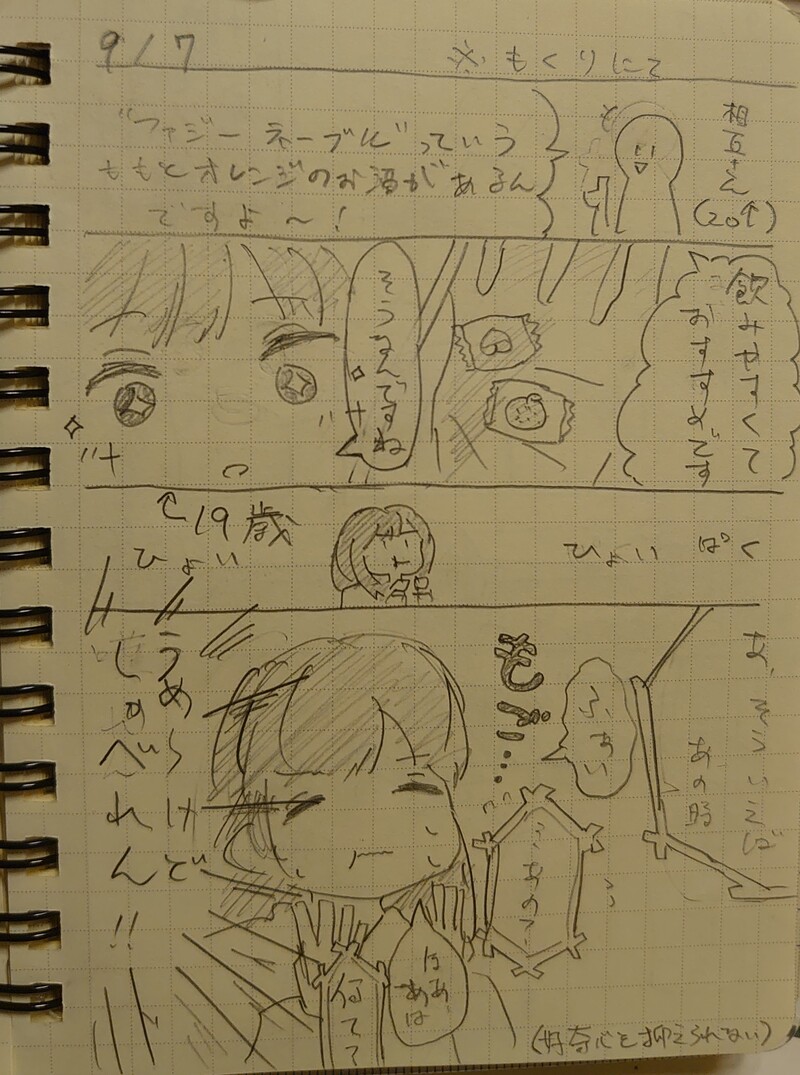 9/7
※もくりにて
相互さん
(20↑)
"ファジーネーブル"っていう
ももとオレンジのお酒があるん
ですよ～!
飲みやすくて
おすすめです
そうなんですね
バナ
バナ
19歳
ひょい ぱく
ひょい
あ、そういえば
あの時
ふぁい
もぶ…
あの
うめぇけど
しゃべれんど!!
はぁ
あは
何てて
(好奇心を抑えられない)